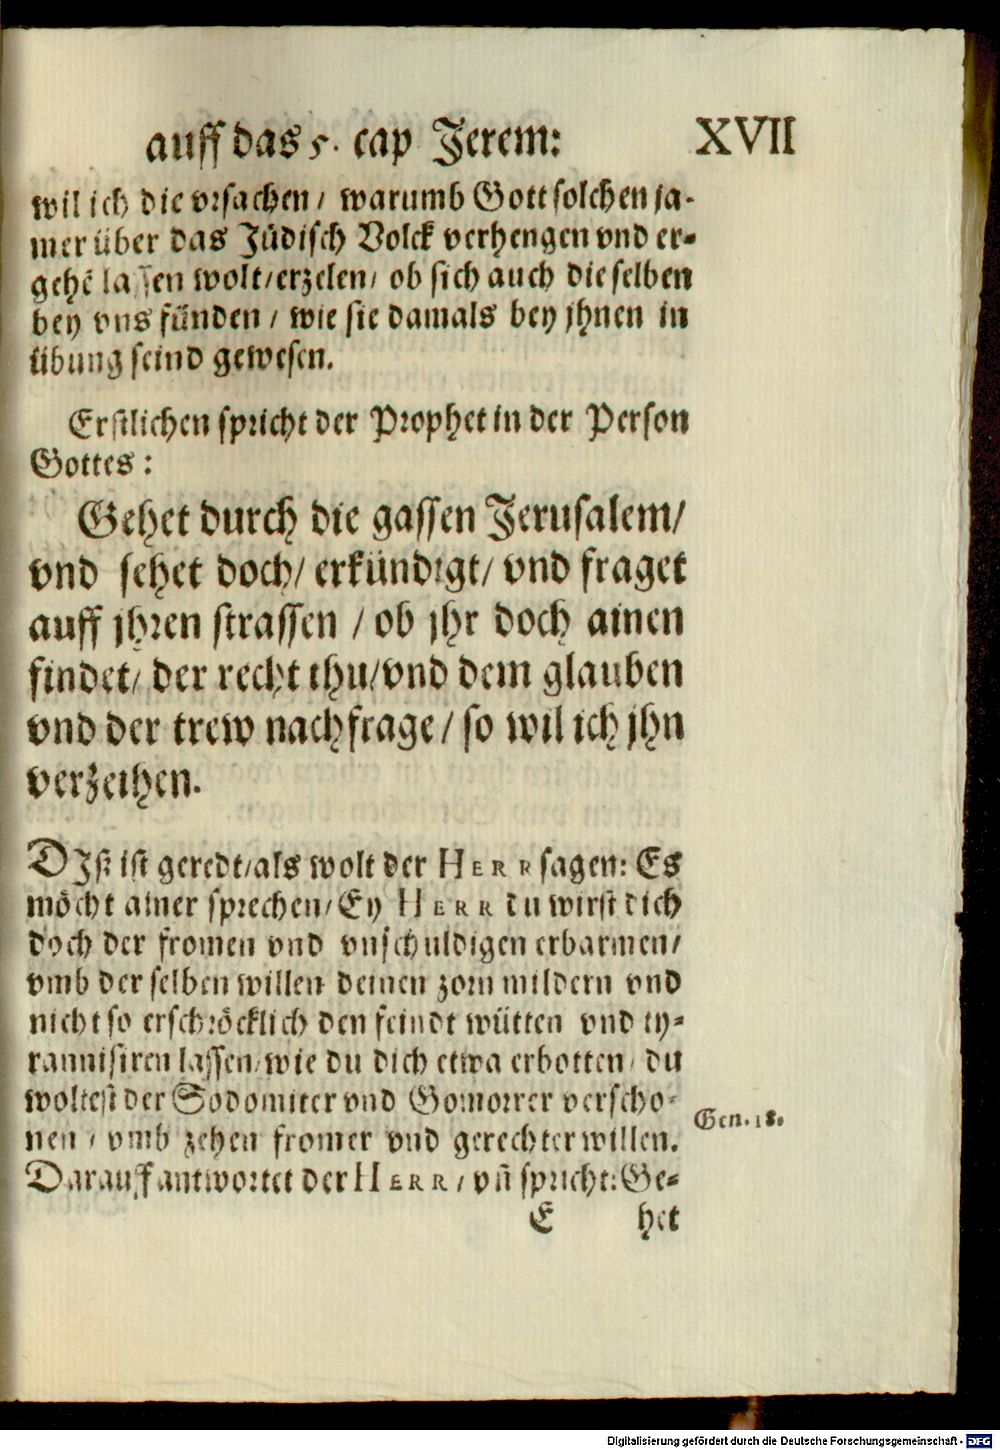 auff das 5. cap Jerem: XVII
wil ich die vrsachen / warumb Gott solchen ja-
mer über das Jüdisch Volck verhengen vnd er-
gehẽ lassen wolt / erzelen / ob sich auch die selben
bey vns fünden / wie sie damals bey jhnen in
übung seind gewesen.
Erstlichen spricht der Prophet in der Person
Gottes:
Gehet durch die gassen Jerusalem /
vnd sehet doch / erkündigt / vnd fraget
auff jhren strassen / ob jhr doch ainen
findet / der recht thu / vnd dem glauben
vnd der trew nachfrage / so wil ich jhn
verzeihen.
DIß ist geredt / als wolt der HERR sagen: Es
möcht ainer sprechen / Ey HERR du wirst dich
doch der fromen vnd vnschuldigen erbarmen /
vmb der selben willen deinen zorn mildern vnd
nicht so erschröcklich den feindt wütten vnd ty-
rannisiren lassen / wie du dich etwa erbotten / du
woltest der Sodomiter vnd Gomorrer verscho-
nen / vmb zehen fromer vnd gerechter willen.
Gen. 18.
Darauff antwortet der HERR / vñ spricht: Ge-
E het
Digitalisierung gefördert durch die Deutsche Forschungsgemeinschaft - DFG